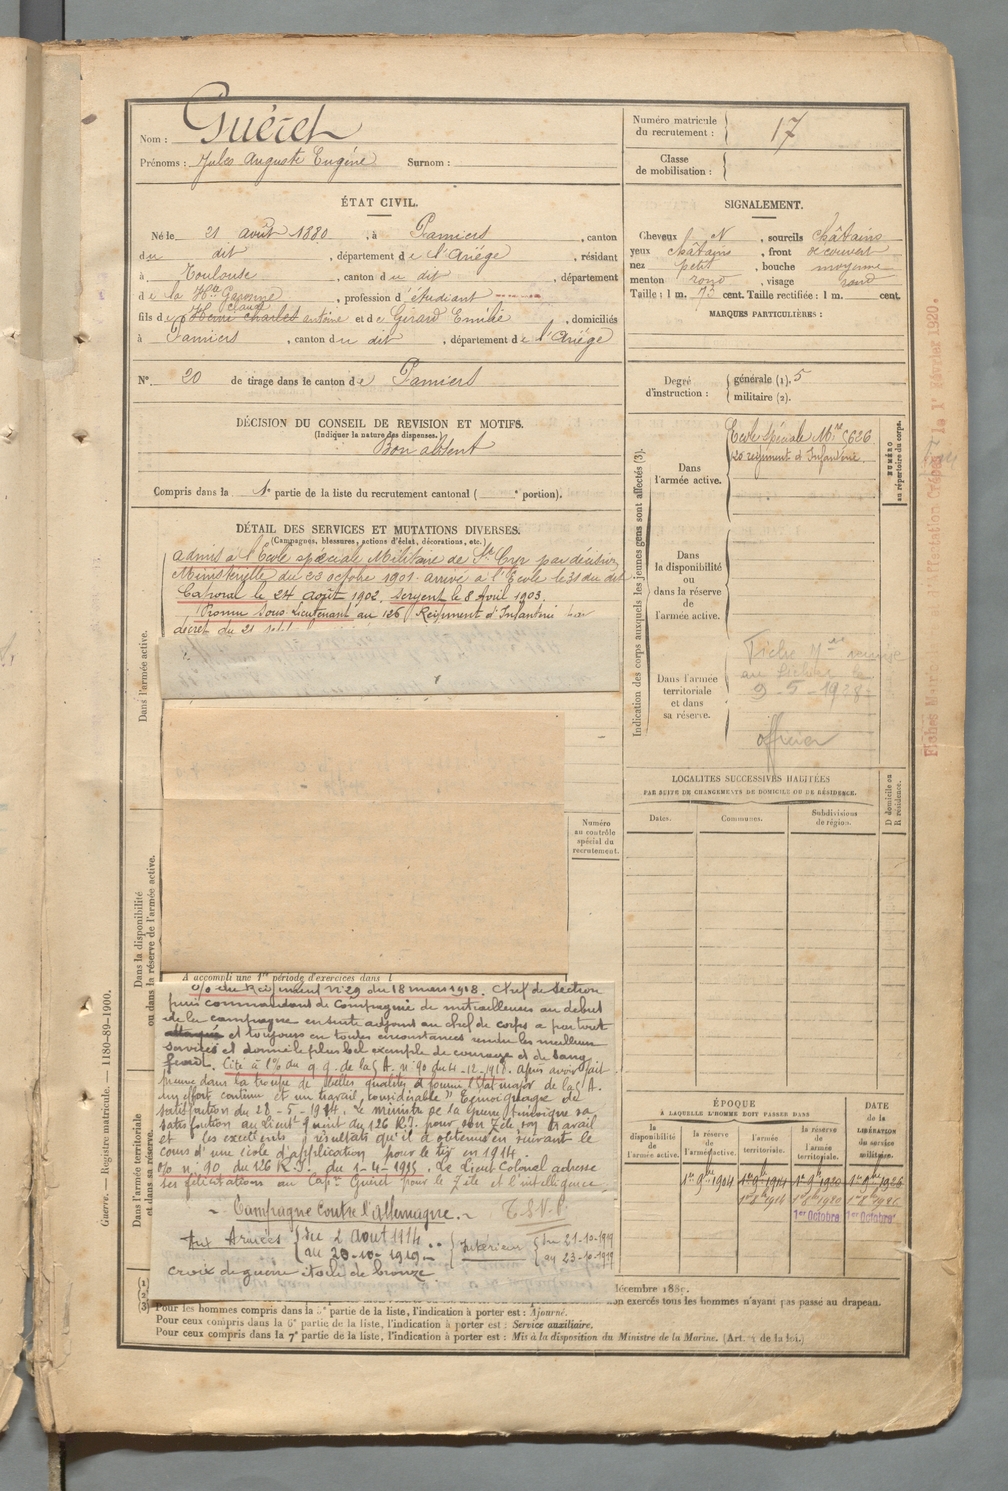 Nom : Guéret
Prénoms : Jules Auguste Eugène Surnom :
Numéro matricule du recrutement : 17
Classe de mobilisation :
ÉTAT CIVIL.
Né le 21 août 1880, à Pamiers, canton
du dit, département de l'Ariège, résidant
à Toulouse, canton du dit, département
de la Hte Garonne, profession d'étudiant
claude
fils de Henri charles antoine et de Girard Emilie, domiciliés
à Pamiers, canton du dit, département de l'Ariège
N° 20 de tirage dans le canton de Pamiers
SIGNALEMENT.
Cheveux ch N, sourcils châtains
yeux châtains, front découvert
nez petit, bouche moyenne
menton rond, visage rond
Taille : 1 m. 73 cent. Taille rectifiée : 1 m. cent.
MARQUES PARTICULIÈRES :
Degré d'instruction : générale (1). 5
militaire (2).
DÉCISION DU CONSEIL DE REVISION ET MOTIFS.
(Indiquer la nature des dispenses.)
Bon absent
Compris dans la 1e partie de la liste du recrutement cantonal ( e portion).
DÉTAIL DES SERVICES ET MUTATIONS DIVERSES.
(Campagnes, blessures, actions d'éclat, décorations, etc.)
Dans l'armée active.
admis à l'École spéciale Militaire de St Cyr par décision
Ministérielle du 23 octobre 1901. arrivé à l'École le 31 du dit
Caporal le 24 août 1902. Sergent le 8 Avril 1903.
Promu Sous-Lieutenant au 126e Régiment d'Infanterie par
décret du 21
Dans la disponibilité ou dans la réserve de l'armée active.
Numéro au contrôle spécial du recrutement.
A accompli une 1re période d'exercices dans
Dans l'armée territoriale et dans sa réserve.
O/o du Régiment n° 29 du 18 mars 1918. Chef de section
puis commandant de Compagnie de mitrailleuses au début
de la campagne ensuite adjoint au chef de corps a partout
et toujours en toutes circonstances rendu les meilleurs
services et donné le plus bel exemple de courage et de sang
froid. Cité à l'O/ du q. g. de la 5 A. n° 90 du 4-12-1918. après avoir fait
preuve dans la troupe de belles qualités a fourni à l'Etat major de la 5 A.
un effort continu et un travail considérable" Témoignage de
satisfaction du 28-5-1914. Le ministre de la Guerre témoigne sa
satisfaction au Lieut Guéret du 126 R.I. pour son zèle, son travail
et les excellents résultats qu'il a obtenus en suivant le
cours d'une école d'application pour le tir en 1914
O/o n° 90 du 126 R.I. du 1-4-1915. Le Lieut Colonel adresse
ses félicitations au Cap. Guéret pour le zèle et l'intelligence
Campagne contre l'Allemagne. T.S.V.P.
Aux Armées du 2 août 1914 au 20-10-1919 Intérieur du 21-10-1919 au 23-10-1919
croix de guerre étoile de bronze
Indication des corps auxquels les jeunes gens sont affectés (3).
NUMÉRO au répertoire du corps.
Dans l'armée active.
École Spéciale Mre 5626
126 régiment d'Infanterie
Dans la disponibilité ou dans la réserve de l'armée active.
Dans l'armée territoriale et dans sa réserve.
Fiche Mre
9-5-1928
officier
LOCALITÉS SUCCESSIVES HABITÉES
PAR SUITE DE CHANGEMENTS DE DOMICILE OU DE RÉSIDENCE.
Dates. Communes. Subdivisions de région. D domicile ou R résidence.
ÉPOQUE
À LAQUELLE L'HOMME DOIT PASSER DANS
DATE de la LIBÉRATION du service militaire.
la disponibilité de l'armée active. la réserve de l'armée active. l'armée territoriale. la réserve de l'armée territoriale.
1er 9bre 1904 1er 9bre 1914 1er 9bre 1920 1er 9bre 1926
1er Octobre 1er Octobre
décembre 188
non exercés tous les hommes n'ayant pas passé au drapeau.
Pour les hommes compris dans la partie de la liste, l'indication à porter est : Ajourné.
Pour ceux compris dans la 6e partie de la liste, l'indication à porter est : Service auxiliaire.
Pour ceux compris dans la 7e partie de la liste, l'indication à porter est : Mis à la disposition du Ministre de la Marine. (Art. 4 de la loi.)
Guerre. — Registre matricule. — 1180-89-1900.